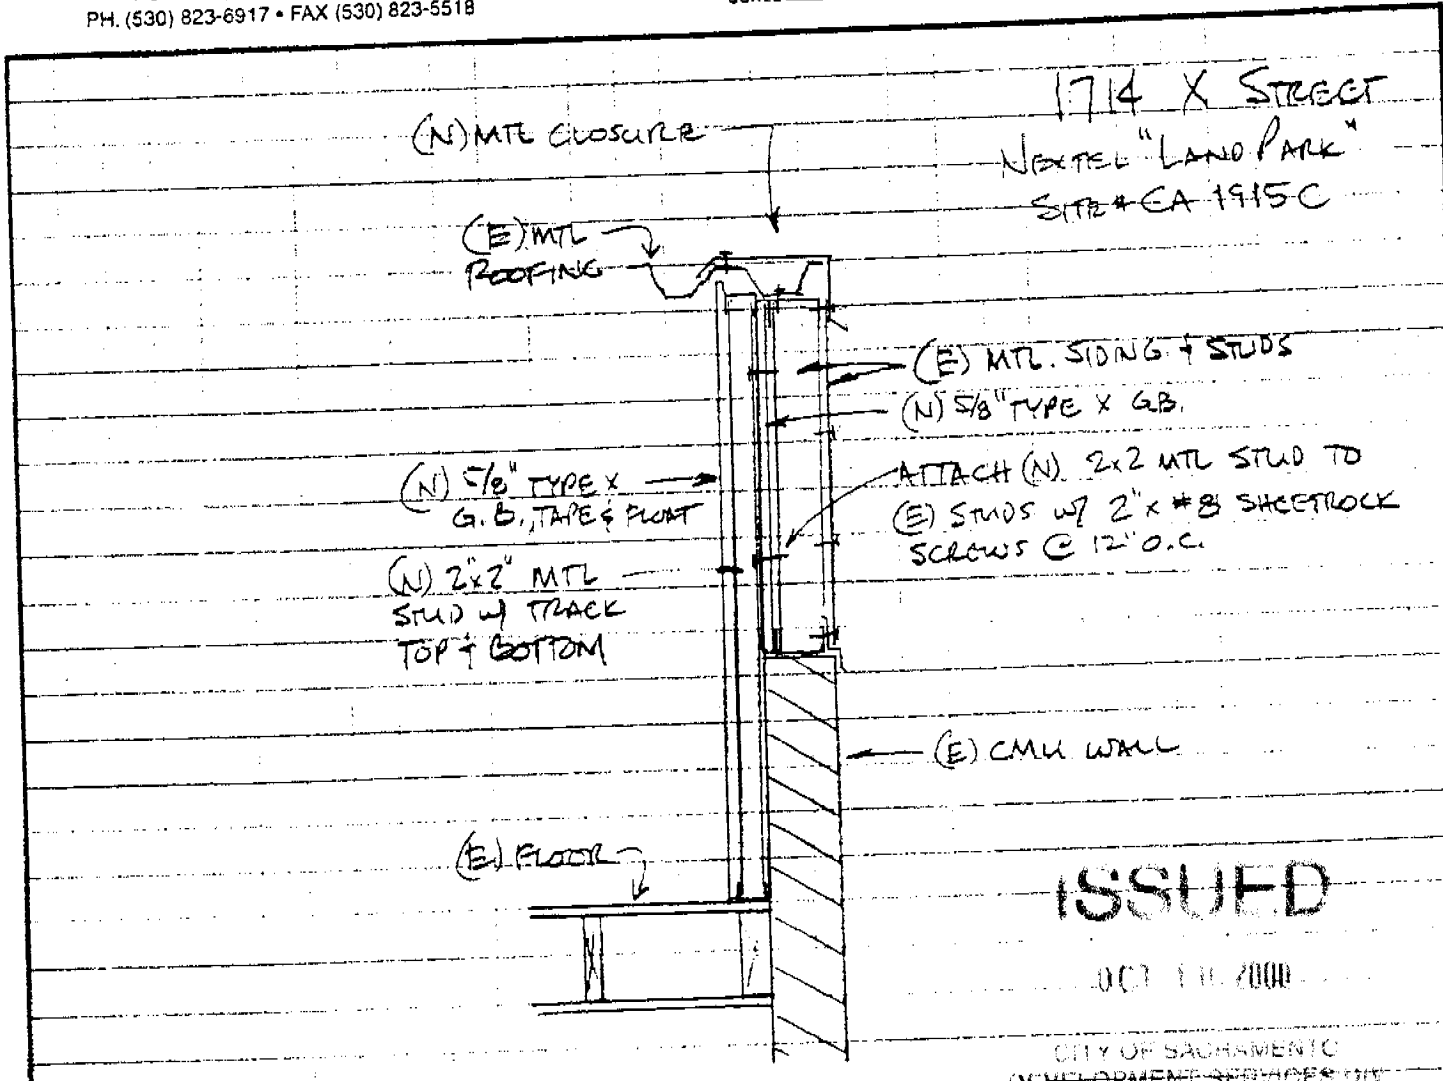 PH. (530) 823-6917 • FAX (530) 823-5518
1714 X STREET
NEXTEL "LAND PARK"
SITE # CA 1915C
(N) MTL CLOSURE
(E) MTL
ROOFING
(E) MTL. SIDING & STUDS
(N) 5/8" TYPE X G.B.
ATTACH (N) 2x2 MTL STUD TO
(E) STUDS W/ 2" x #8 SHEETROCK
SCREWS @ 12" O.C.
(N) 5/8" TYPE X
G.B., TAPE & FLOAT
(N) 2"x2" MTL
STUD W/ TRACK
TOP & BOTTOM
(E) CMU WALL
(E) FLOOR
ISSUED
OCT 2000
CITY OF SACRAMENTO
DEVELOPMENT SERVICES DIV